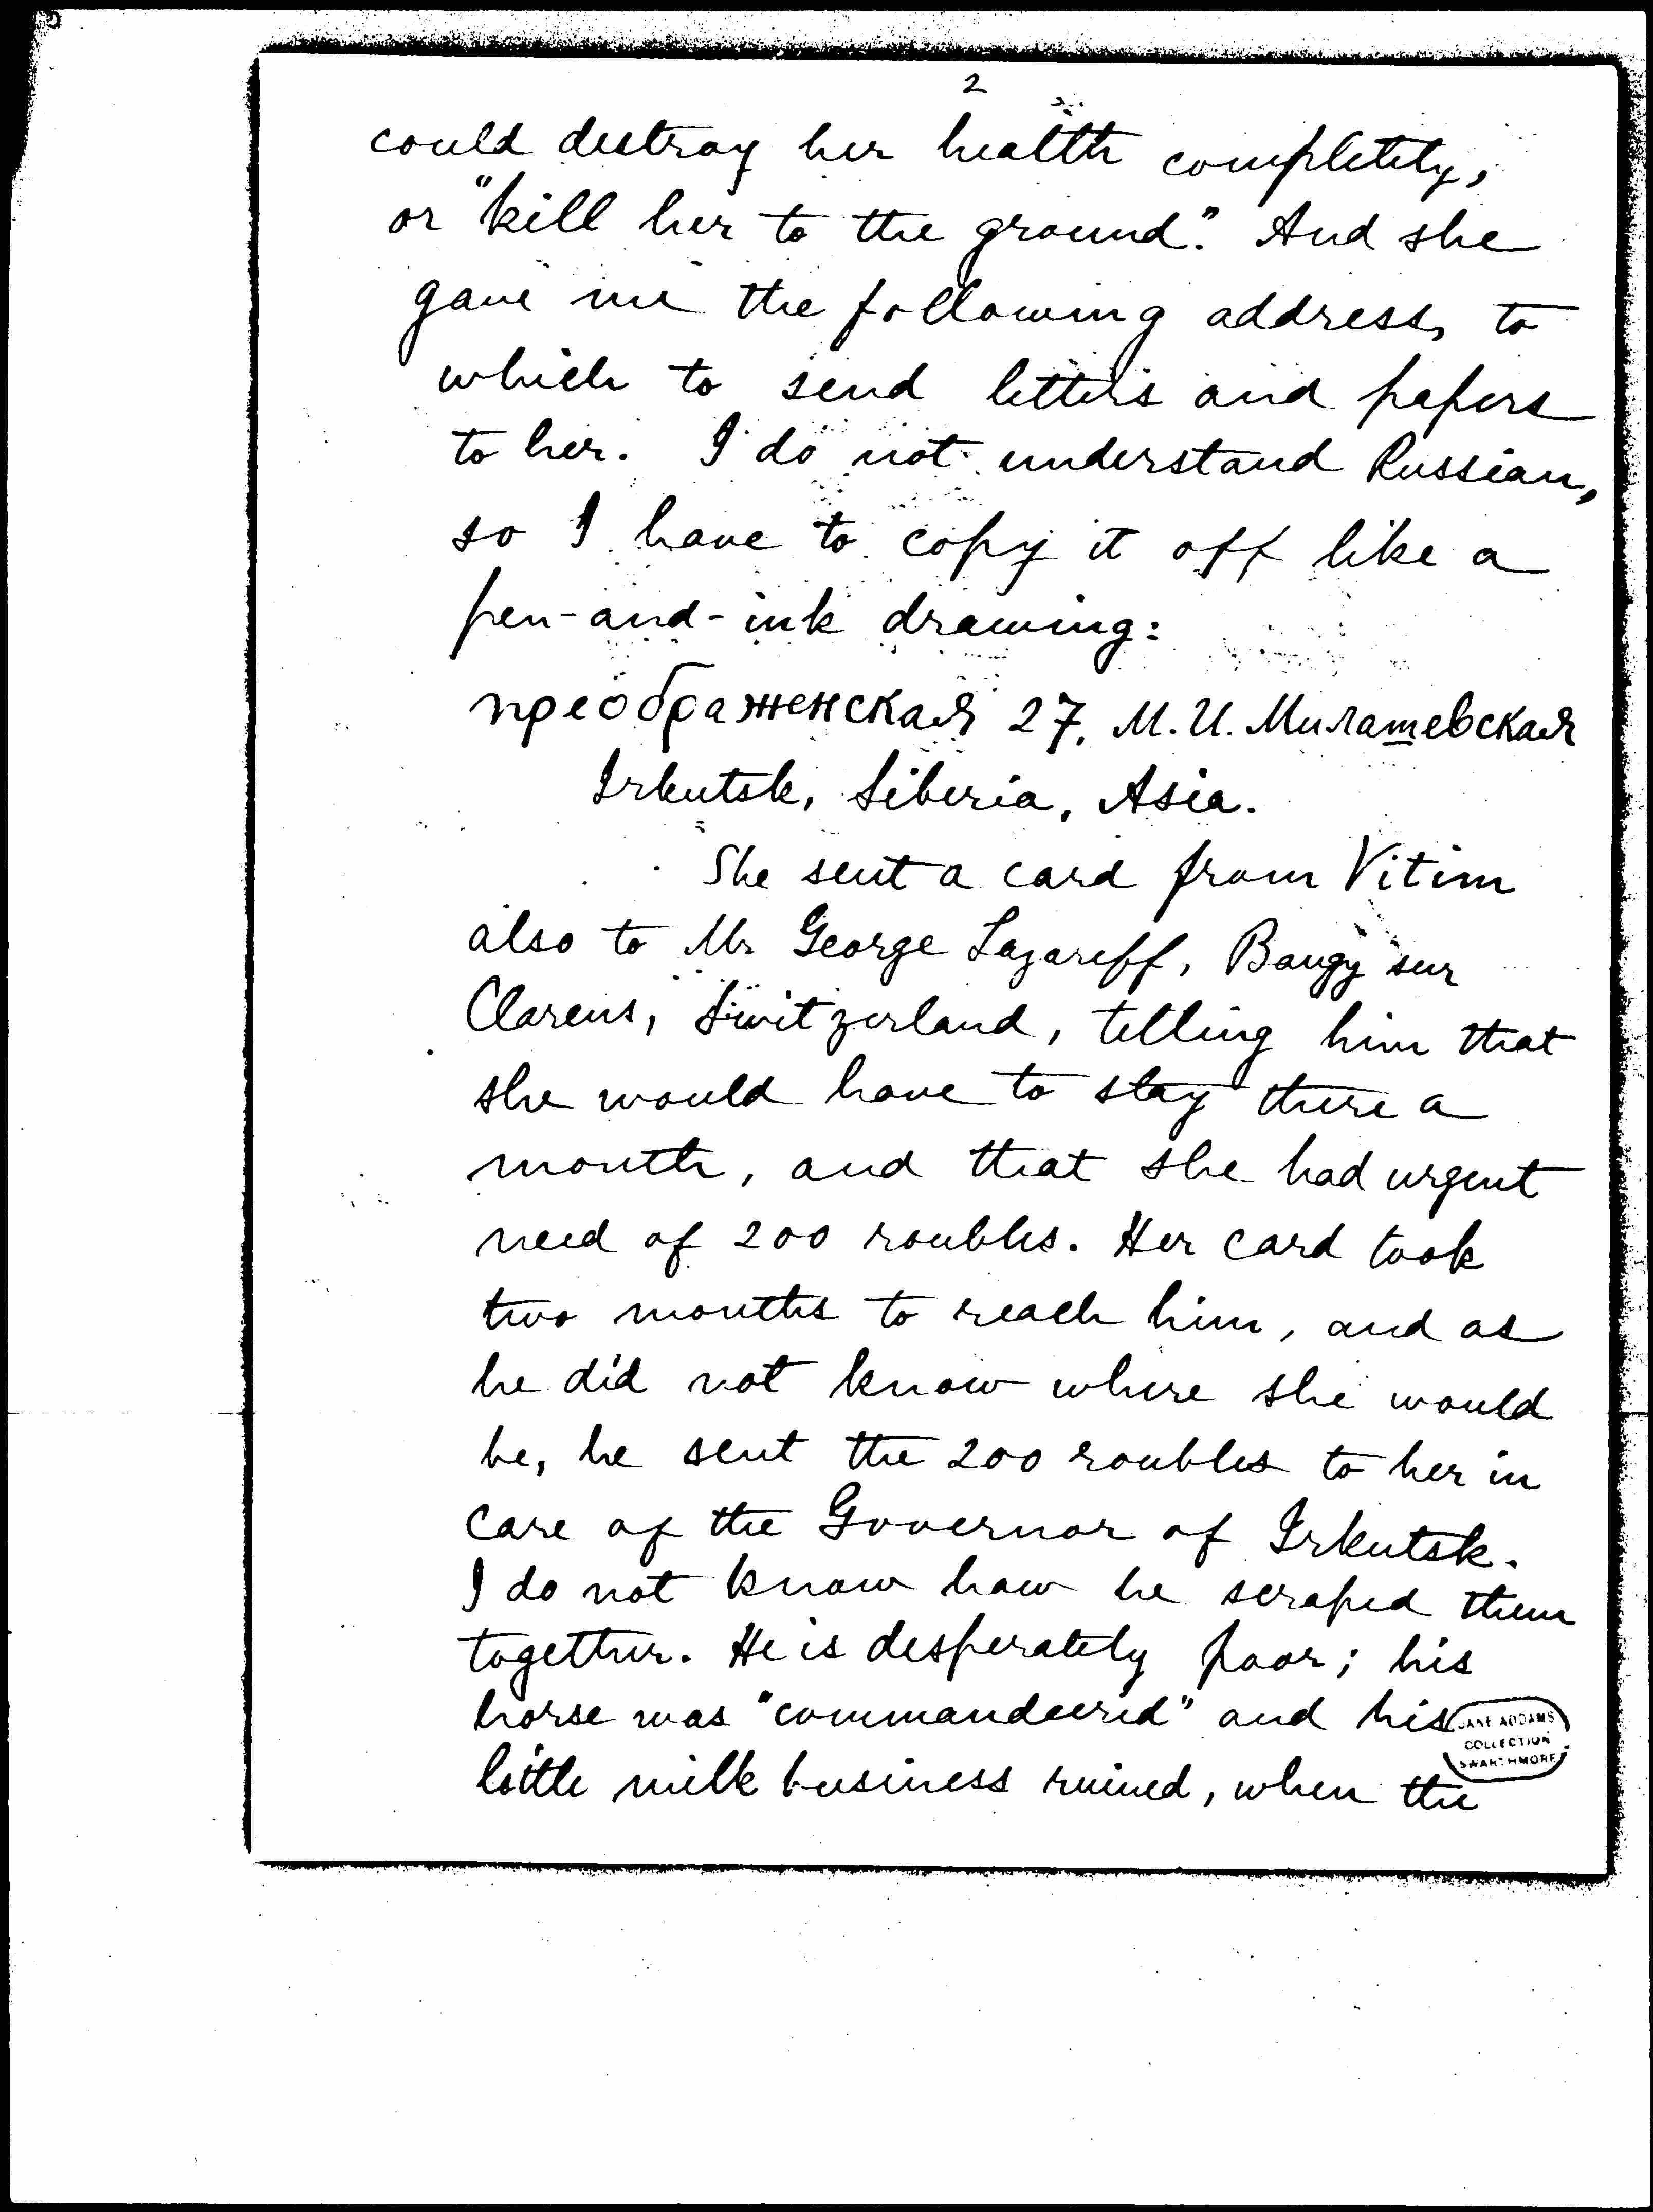 2
could destroy her health completely,
or "kill her to the ground." And she
gave me the following address, to
which to send letters and papers
to her. I do not understand Russian,
so I have to copy it off like a
pen-and-ink drawing:
преображенская 27, М. И. Милашевская
Irkutsk, Siberia, Asia.
She sent a card from Vitim
also to Mr George Lazareff, Baugy sur
Clarens, Switzerland, telling him that
she would have to stay there a
month, and that she had urgent
need of 200 roubles. Her card took
two months to reach him, and as
he did not know where she would
be, he sent the 200 roubles to her in
care of the Governor of Irkutsk.
I do not know how he scraped them
together. He is desperately poor; his
horse was "commandeered" and his
little milk business ruined, when the
JANE ADDAMS
COLLECTION
SWARTHMORE